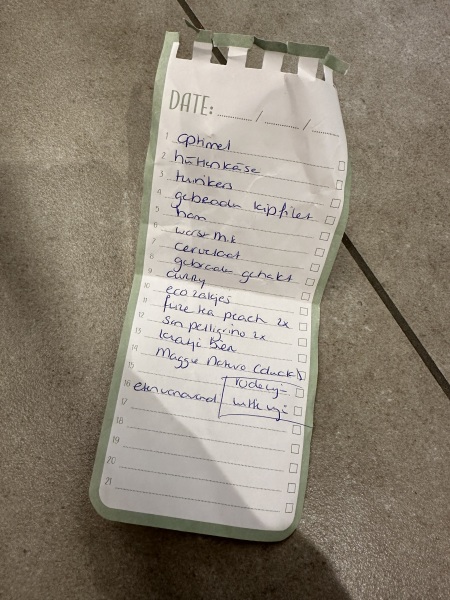 DATE: / /
1 optimel
2 hüttenkäse
3 tunikers
4 gebraden kipfilet
5 ham
6 worst M.k
7 cervelaat
8 gebraden gehakt
9 curry
10 eco zakjes
11 fuze tea peach 2x
12 San pelligrino 2x
13 kratje bier
14 Maggie Naturo (duck)
15 rode wijn
16 eten vanavond witte wijn
17
18
19
20
21